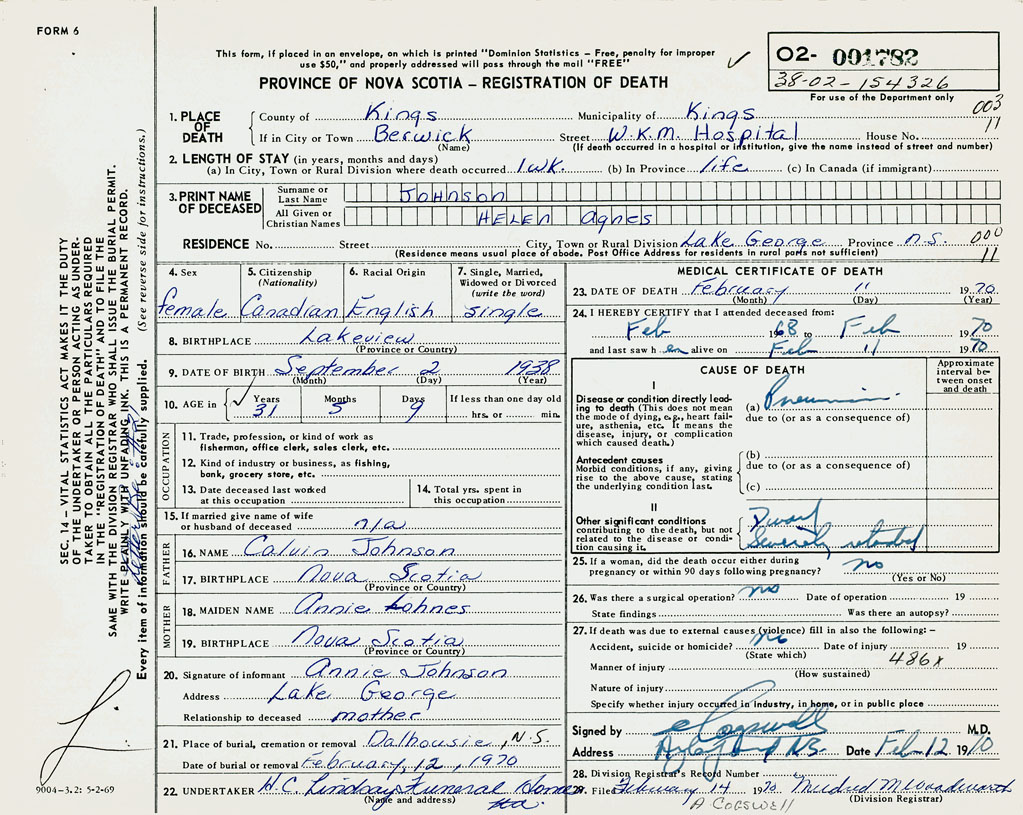 FORM 6
This form, if placed in an envelope, on which is printed "Dominion Statistics – Free, penalty for improper
use $50," and properly addressed will pass through the mail "FREE"
PROVINCE OF NOVA SCOTIA – REGISTRATION OF DEATH
02- 001782
38-02-154326
For use of the Department only
003
11
1. PLACE OF DEATH
County of Kings Municipality of Kings
If in City or Town Berwick Street W.K.M. Hospital House No.
(Name) (If death occurred in a hospital or institution, give the name instead of street and number)
2. LENGTH OF STAY (in years, months and days)
(a) In City, Town or Rural Division where death occurred 1 wk. (b) In Province life (c) In Canada (if immigrant)
3. PRINT NAME OF DECEASED
Surname or Last Name Johnson
All Given or Christian Names HELEN Agnes
RESIDENCE No. Street City, Town or Rural Division Lake George Province N.S. 000
(Residence means usual place of abode. Post Office Address for residents in rural parts not sufficient) 11
4. Sex female
5. Citizenship (Nationality) Canadian
6. Racial Origin English
7. Single, Married, Widowed or Divorced (write the word) single
8. BIRTHPLACE Lakeview
(Province or Country)
9. DATE OF BIRTH September 2 1938
(Month) (Day) (Year)
10. AGE in Years 31 Months 5 Days 9 If less than one day old hrs. or min.
OCCUPATION
11. Trade, profession, or kind of work as
fisherman, office clerk, sales clerk, etc.
12. Kind of industry or business, as fishing,
bank, grocery store, etc.
13. Date deceased last worked
at this occupation
14. Total yrs. spent in
this occupation
15. If married give name of wife
or husband of deceased n/a
FATHER
16. NAME Calvin Johnson
17. BIRTHPLACE Nova Scotia
(Province or Country)
MOTHER
18. MAIDEN NAME Annie
19. BIRTHPLACE Nova Scotia
(Province or Country)
20. Signature of informant Annie Johnson
Address Lake George
Relationship to deceased mother
21. Place of burial, cremation or removal Dalhousie, N.S.
Date of burial or removal February, 12, 1970
22. UNDERTAKER H.C. Lindsay Funeral Home
(Name and address) Ltd.
MEDICAL CERTIFICATE OF DEATH
23. DATE OF DEATH February 11 1970
(Month) (Day) (Year)
24. I HEREBY CERTIFY that I attended deceased from:
Feb 1968 to Feb 1970
and last saw h en alive on Feb 11 1970
CAUSE OF DEATH
Approximate interval between onset and death
I
Disease or condition directly leading to death (This does not mean the mode of dying, e.g., heart failure, asthenia, etc. It means the disease, injury, or complication which caused death.)
(a) Pneumonia
due to (or as a consequence of)
Antecedent causes
Morbid conditions, if any, giving rise to the above cause, stating the underlying condition last.
(b)
due to (or as a consequence of)
(c)
II
Other significant conditions
contributing to the death, but not related to the disease or condition causing it.
Dwarf
Severely retarded
25. If a woman, did the death occur either during
pregnancy or within 90 days following pregnancy? no
(Yes or No)
26. Was there a surgical operation? no Date of operation 19
State findings Was there an autopsy?
27. If death was due to external causes (violence) fill in also the following:–
Accident, suicide or homicide? no Date of injury 19
(State which) 486x
Manner of injury
(How sustained)
Nature of injury
Specify whether injury occurred in industry, in home, or in public place
Signed by Cogswell M.D.
Address Date Feb 12 1970
28. Division Registrar's Record Number
29. Filed February 14 1970 Mildred M Woodworth
A COGSWELL (Division Registrar)
SEC. 14 – VITAL STATISTICS ACT MAKES IT THE DUTY
OF THE UNDERTAKER OR PERSON ACTING AS UNDER-
TAKER TO OBTAIN ALL THE PARTICULARS REQUIRED
IN THE "REGISTRATION OF DEATH" AND TO FILE THE
SAME WITH THE DIVISION REGISTRAR WHO SHALL ISSUE THE BURIAL PERMIT.
WRITE PLAINLY WITH UNFADING INK. THIS IS A PERMANENT RECORD.
Every item of information should be carefully supplied. (See reverse side for instructions.)
9004-3.2: 5-2-69